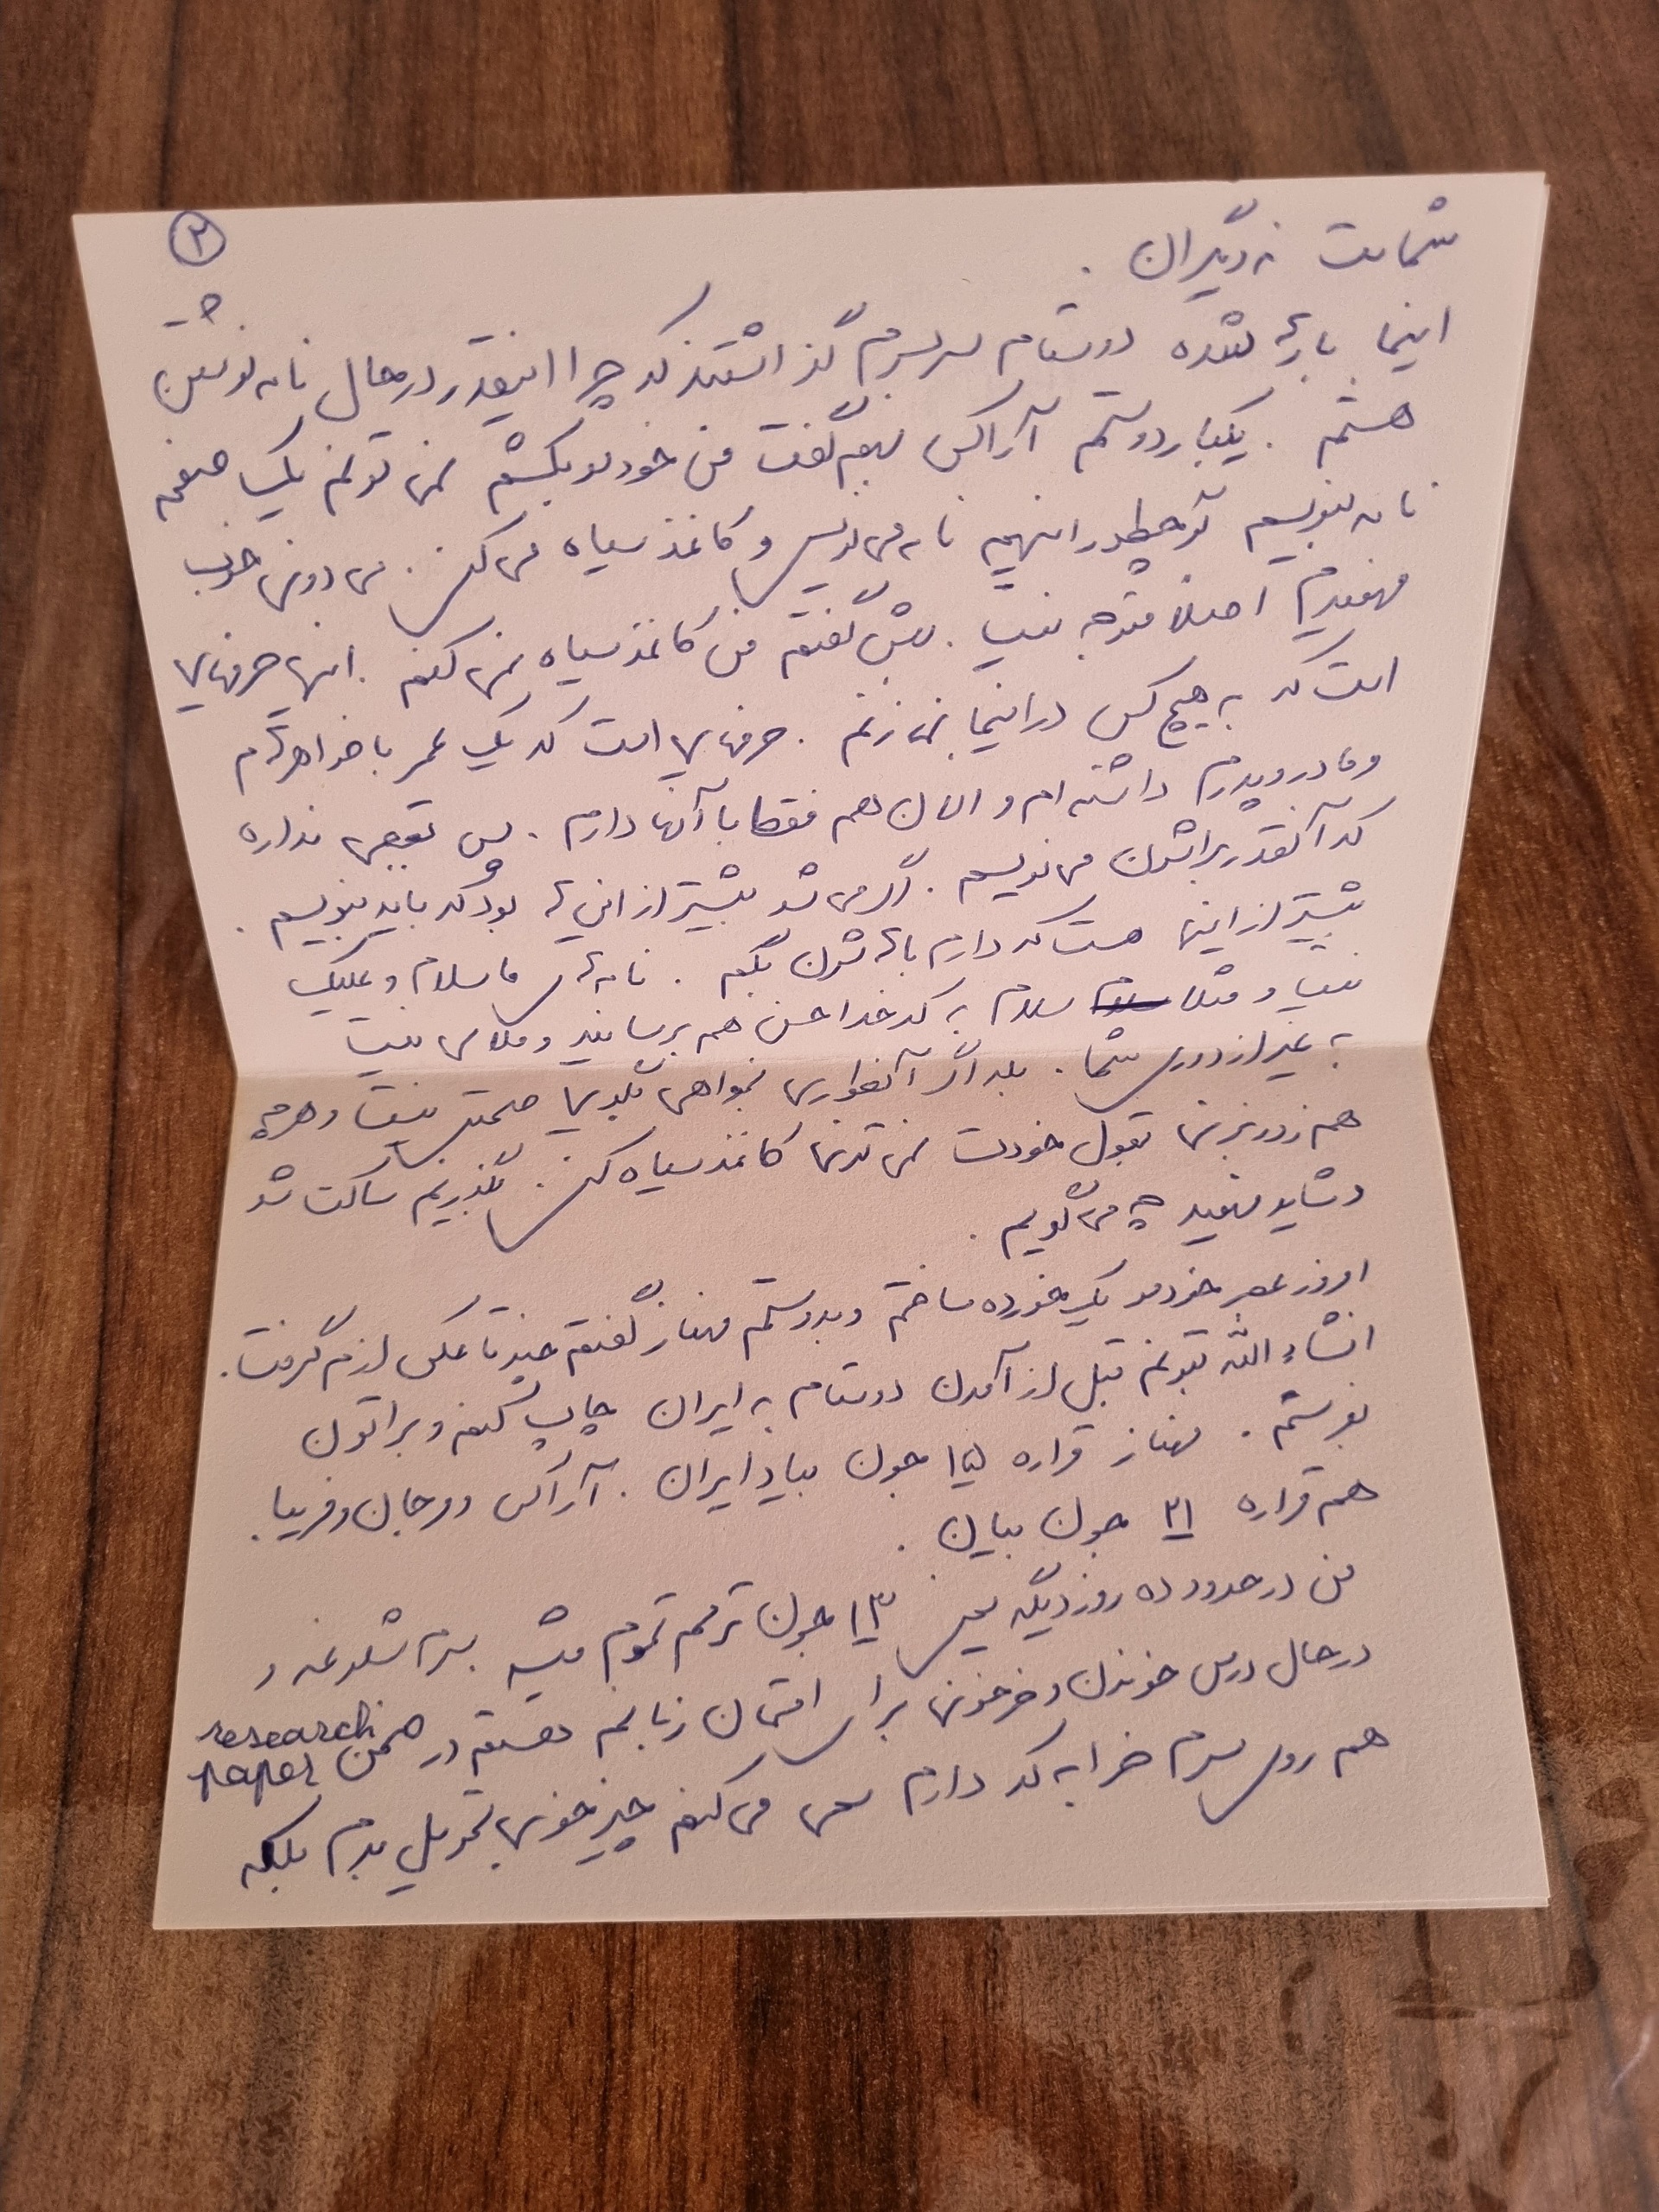 ۲
شماست نه دیگران .
اینجا بارها شده دوستام سربسرم گذاشتند که چرا اینقدر در حال نامه نوشتن
هستم . یکبار دوستم آراکس بهم گفت من خودمو بکشم نمی تونم یک صفحه
نامه بنویسم تو چطور اینهمه نامه می نویسی و کاغذ سیاه می کنی . می دونی خوب
فهمیدم اصلا متوجه نیست . بهش گفتم من کاغذ سیاه نمی کنم . اینها حرفهایی
است که به هیچ کس در اینجا نمی زنم . حرفهایی است که یک عمر با خواهرام
و مادر و پدرم داشته ام و الان هم فقط با آنها دارم . پس تعجبی نداره
که آنقدر براشون می نویسم . اگر می شد بیشتر از اینها بود که باید بنویسم .
بیشتر از اینها هست که دارم باهاشون بگم . نامه های ما سلام و علیک
نیست و مثلا سلام سلام به کدخدا حسن هم برسانید و ملالی نیست
به غیر از دوری شما . بله اگر آنطوری بخواهی بگویی صحبتی نیست و هرچی
هم زور بزنی بقول خودت نمی تونی کاغذ سیاه کنی . بگذریم ساکت شد
و شاید فهمید چه می گویم .
امروز عصر خودمو یک خورده ساختم و بدوستم مهناز گفتم چند تا عکس ازم گرفت .
انشاء الله بتونم قبل از آمدن دوستام به ایران چاپ کنم و براتون
بفرستم . مهناز قراره ۱۵ جون بیاد ایران . آراکس و مرجان و فریبا
هم قراره ۲۱ جون بیان .
من در حدود ده روز دیگه یعنی ۱۳ جون ترمم تموم میشه سرم شلوغه و
در حال درس خوندن و خرخونی برای امتحان زبانم هستم در ضمن research paper
هم روی سرم خرابه که دارم سعی می کنم چیز خوبی تحویل بدم بلکه